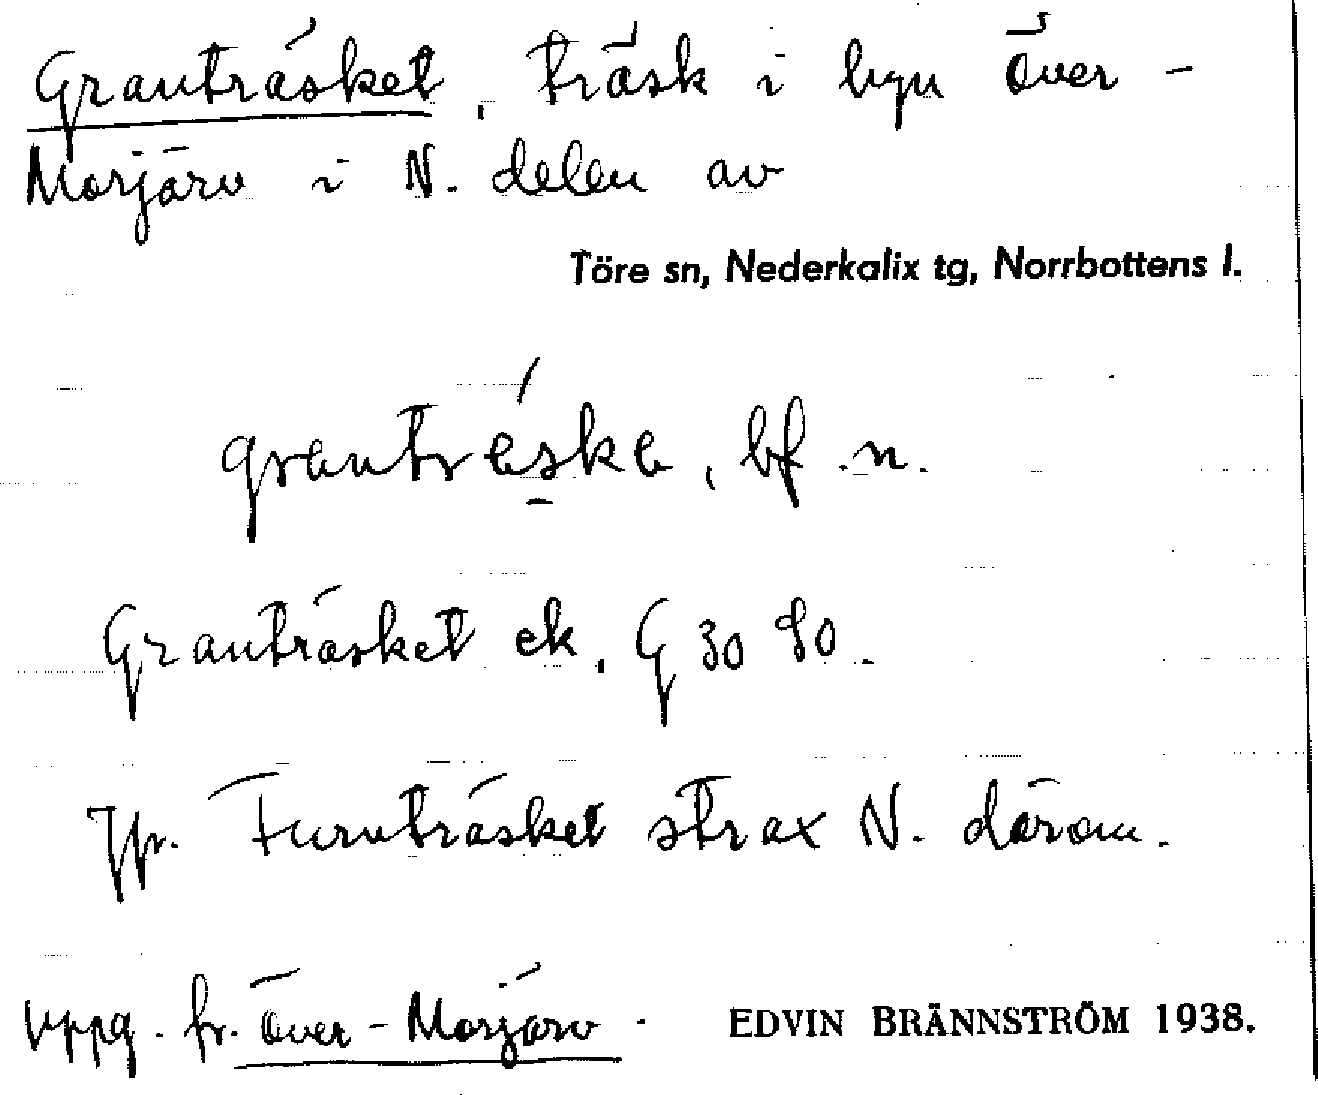 Granträsket, träsk i byn Över-
Morjärv i N. delen av
Töre sn, Nederkalix tg, Norrbottens l.
grantrèske, bf. n.
Granträsket ek. G 30 80.
Jfr. Furuträsket strax N. därom.
Uppg. fr. Över-Morjärv.
EDVIN BRÄNNSTRÖM 1938.